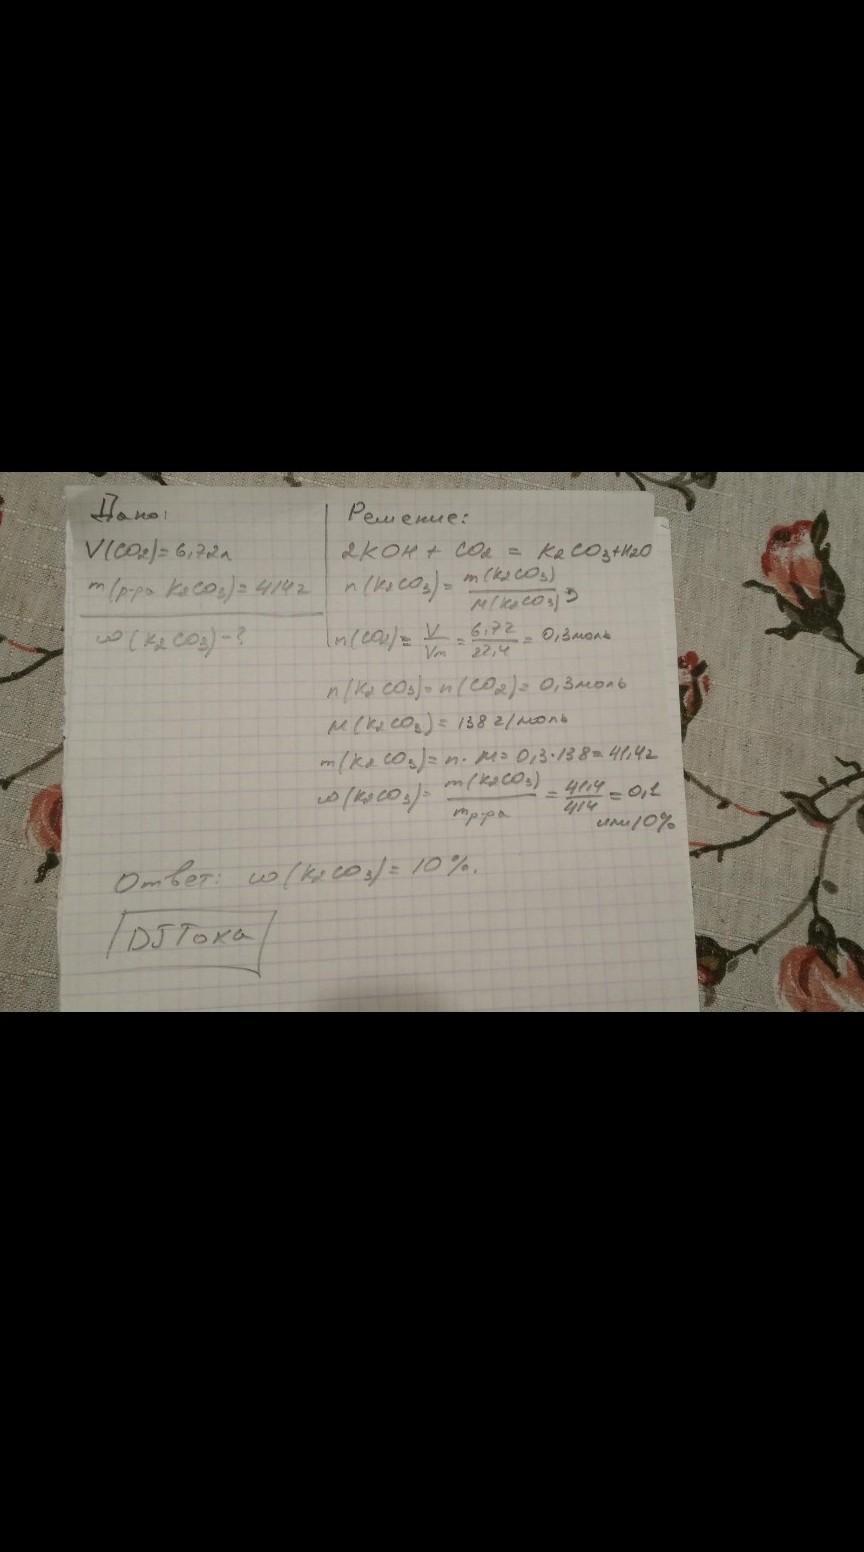 Дано:
V(CO2)=6,72л
m(р-ра K2CO3)=414г
ω(K2CO3)-?
Решение:
2KOH + CO2 = K2CO3+H2O
n(K2CO3)= m(K2CO3)/M(K2CO3)
n(CO2)= V/Vm = 6,72/22,4 = 0,3моль
n(K2CO3)=n(CO2)=0,3моль
M(K2CO3)=138г/моль
m(K2CO3)=n·M=0,3·138=41,4г
ω(K2CO3)= m(K2CO3)/mр-ра = 41,4/414 = 0,1
или 10%
Ответ: ω(K2CO3)=10%.
DJToха